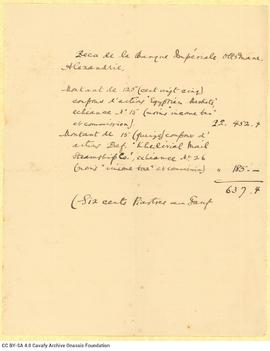 Reçu de la Banque Impériale Ottomane,
Alexandrie,
Montant de 125 (cent vingt cinq)
coupons d'actions "Egyptian
échéance Nº 15 (moins income tax
et commission). 452.4
Montant de 15 (quinze) coupons d'
actions Def. "Khedivial Mail
Steamship Co", échéance Nº 26
(moins "income tax" et commission) " 185.—
637.4
(Six cents Piastres au Tarif
CC BY-SA 4.0 Cavafy Archive Onassis Foundation